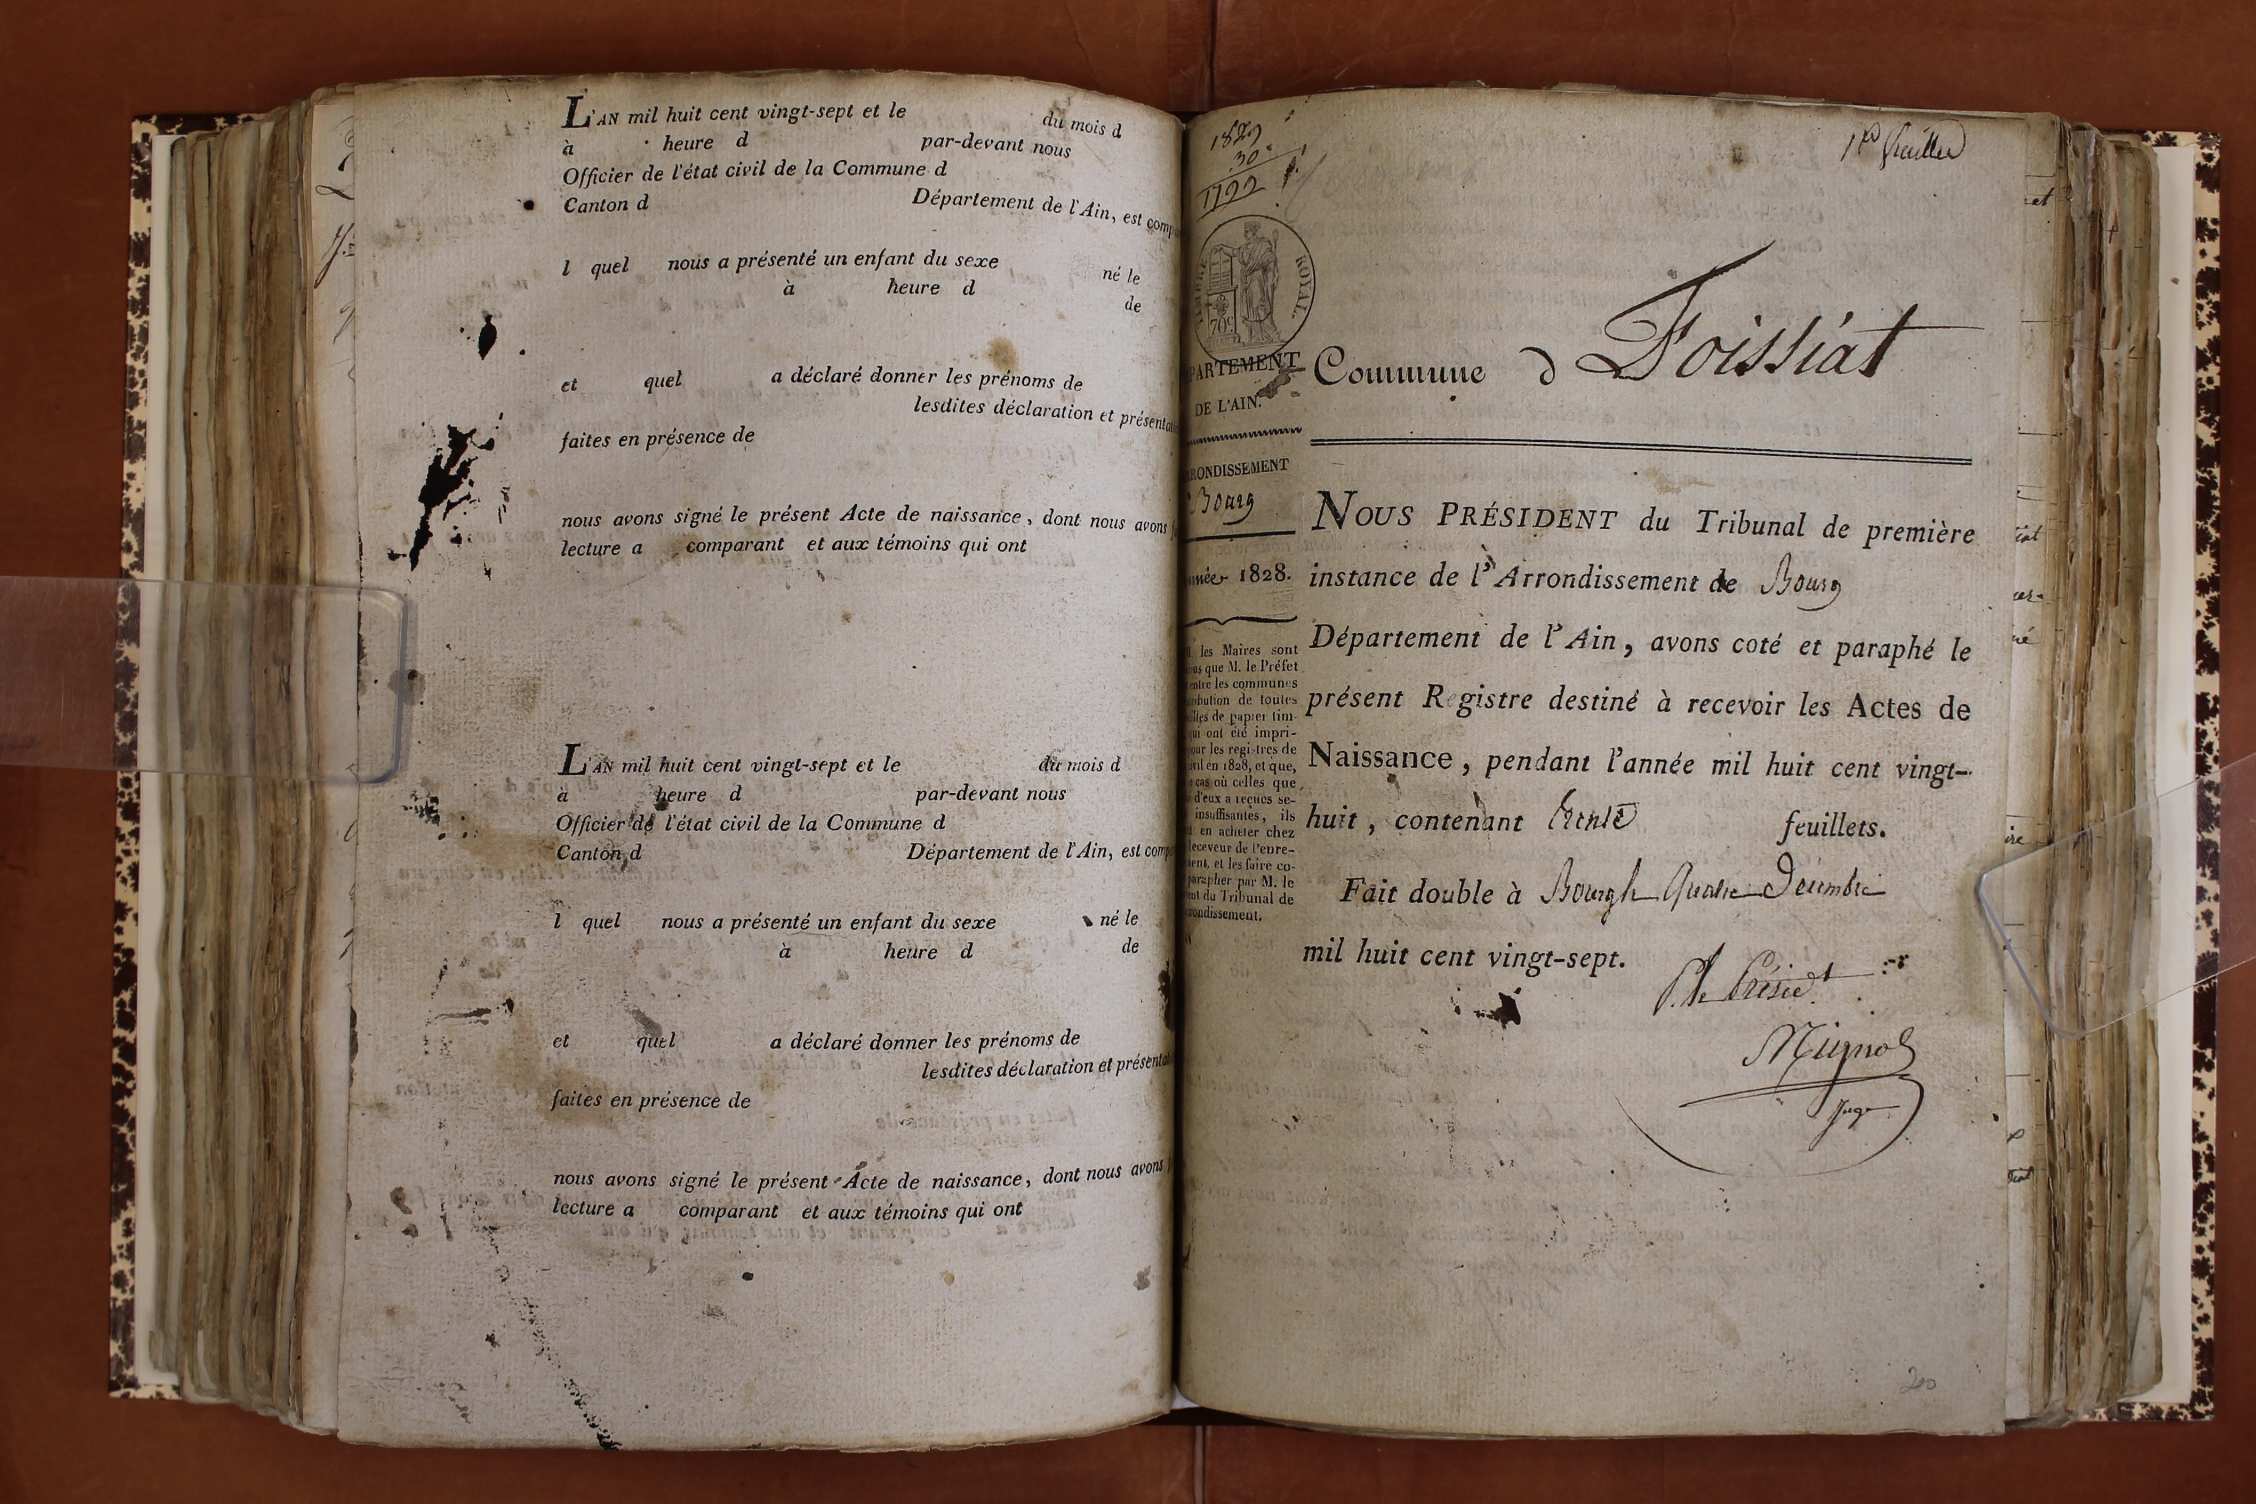 L'AN mil huit cent vingt-sept et le du mois d
à heure d par-devant nous
Officier de l'état civil de la Commune d
Canton d Département de l'Ain, est comp
l quel nous a présenté un enfant du sexe né le
à heure d de
et quel a déclaré donner les prénoms de
lesdites déclaration et présentati
faites en présence de
nous avons signé le présent Acte de naissance, dont nous avons
lecture a comparant et aux témoins qui ont
L'AN mil huit cent vingt-sept et le du mois d
à heure d par-devant nous
Officier de l'état civil de la Commune d
Canton d Département de l'Ain, est comp
l quel nous a présenté un enfant du sexe né le
à heure d de
et quel a déclaré donner les prénoms de
lesdites déclaration et présentat
faites en présence de
nous avons signé le présent Acte de naissance, dont nous avons
lecture a comparant et aux témoins qui ont
1er feuillet
30
ROYAL
70c
PARTEMENT
DE L'AIN.
RONDISSEMENT
Bourg
1828.
les Maires sont
que M. le Préfet
entre les communes
ribution de toutes
de papier tim-
qui ont été impri-
our les registres de
vil en 1828, et que,
cas où celles que
d'eux a reçues se-
insuffisantes, ils
en acheter chez
eceveur de l'enre-
ent, et les faire co-
parapher par M. le
ent du Tribunal de
rondissement.
Commune d Foissiat
NOUS PRÉSIDENT du Tribunal de première
instance de l'Arrondissement de Bourg
Département de l'Ain, avons coté et paraphé le
présent Registre destiné à recevoir les Actes de
Naissance, pendant l'année mil huit cent vingt-
huit, contenant trente feuillets.
Fait double à Bourg le quatre Décembre
mil huit cent vingt-sept.
P. le Présidt
Juge
200